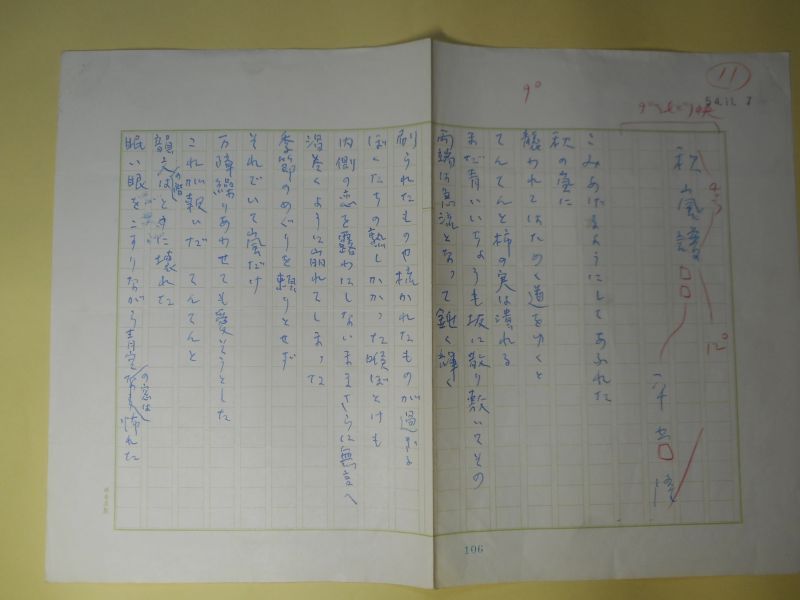 11
54.11.7
9°
秋風譚
12°
平出隆
こみあげるようにしてあふれた
秋の室に
襲われてはためく道をゆくと
てんてんと柿の実は潰れる
まだ青いいちょうも坂に散り敷いてその
両端は急流となって鈍く輝く
刷られたものや梳かれたものが過ぎる
ぼくたちの熟しかかった喉ぼとけも
内側の恋を露わにしないまま さらに無言へ
渦巻くように崩れてしまった
季節のめぐりを頼りとせず
それでいて嵐だけ
万障繰りあわせても愛そうとした
これが報いだ てんてんと
韻文の階はとすに壊れた
眠い眼をこすりながら
の窓は
怖れた
106